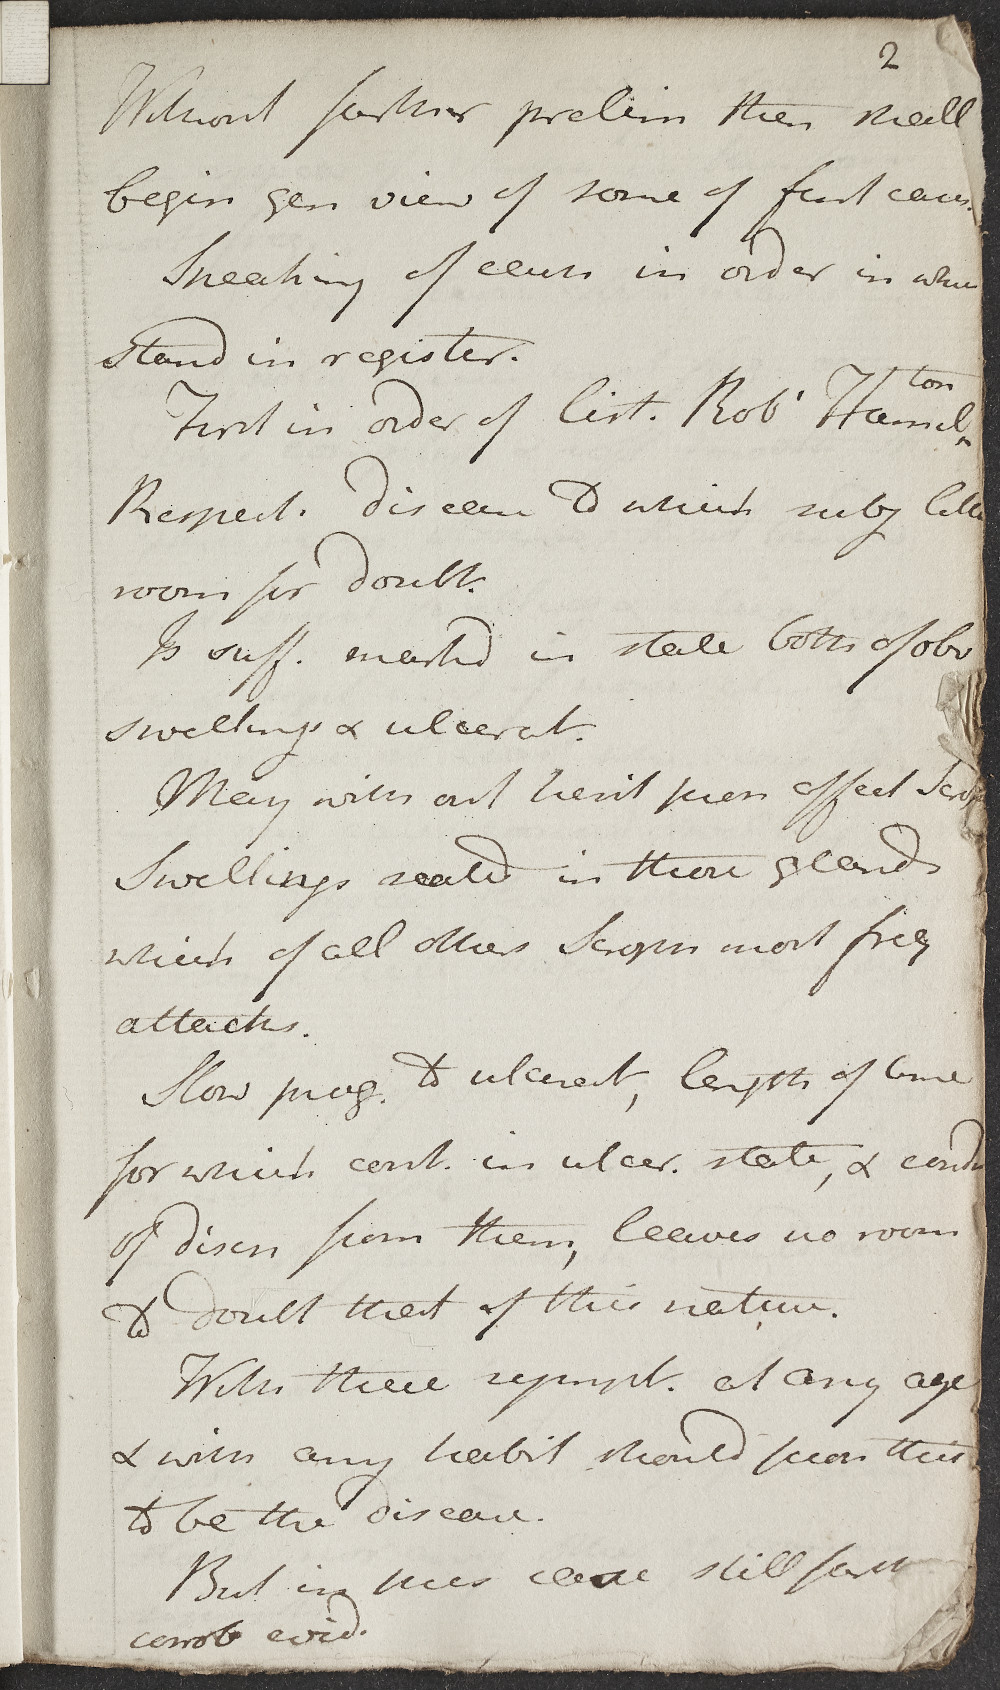 2
Without further prelim then shall
begin gen view of some of partcaus.
Speaking of cases in order in whic
stand in register.
First in order of list. Robt Hamilton
Respect. disease to which subj little
room for doubt.
Is suff. marked in state both of obv
swellings & ulcerat.
May without hesit pron affect Scro
Swellings seated in those glands
which of all others Scroph most freq
attacks.
Slow prog. to ulcerat, length of time
for which cont. in ulcer. state, & condi
of disch from them, leaves no room
to doubt that of this nature.
With these sympt. at any age
& with any habit should pron this
to be the disease.
But in pres case still furth
corrob evid.